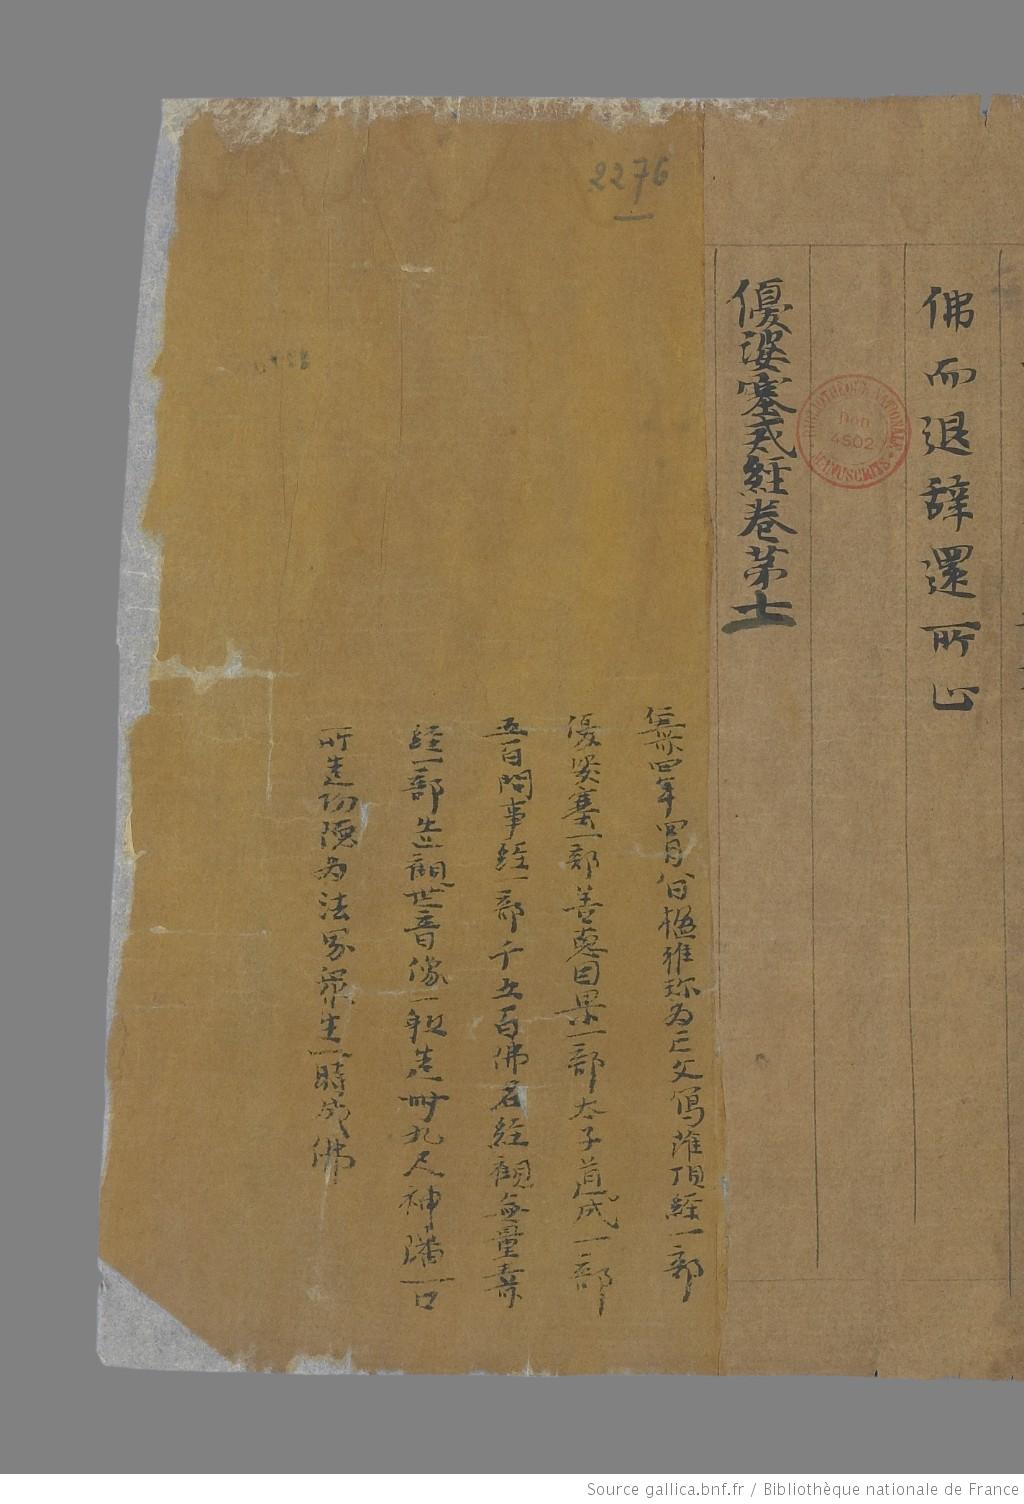 佛而退辞還所止
優婆塞戒經卷第十
仁壽四年四月八日楹維珎為亡父寫灌頂經一部
優婆塞一部善惡因果一部太子成道一部
五百問事經一部千五百佛名經一部觀無量壽
經一部造觀世音像一軀造卌九尺神幡一口
所造功德為法界衆生一時成佛
2276
BIBLIOTHÈQUE NATIONALE
Don
4502
MANUSCRITS
Source gallica.bnf.fr / Bibliothèque nationale de France